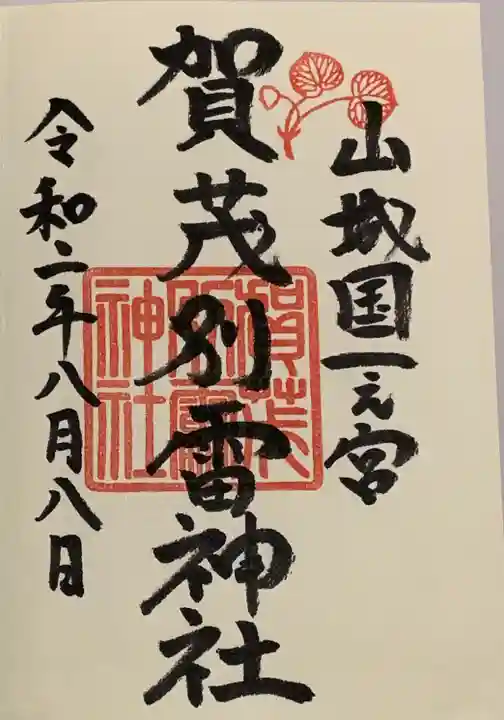 山城国一之宮
賀茂別雷神社
令和二年八月八日
賀茂
別雷
神社